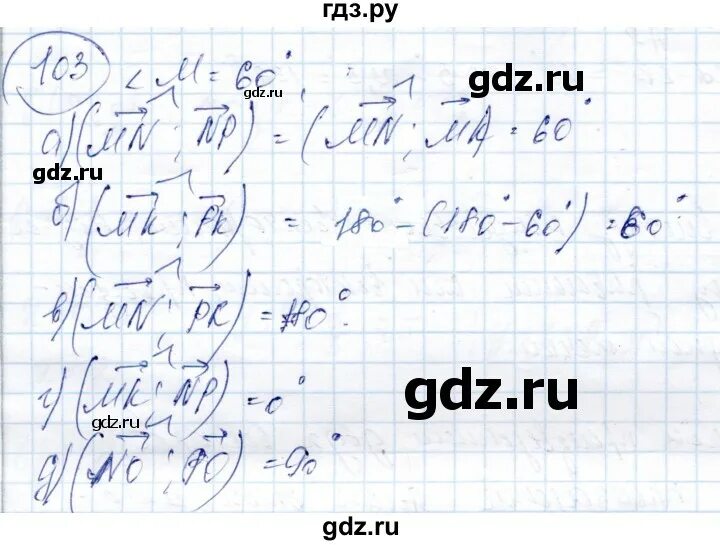 гдз.ру
103 < M = 60°
gdz.ru
gdz.ru
а) (MN; NP) = (MN; MK) = 60°
gdz.ru
б) (MK; PK) = 180° - (180° - 60°) = 60°
в) (MN; PK) = 180°
г) (MK; NP) = 0°
gdz.ru
gdz.ru
д) (NO; PO) = 90°
gdz.ru